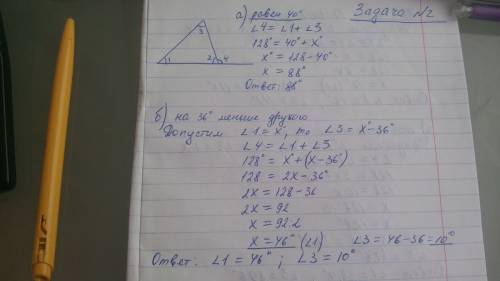 Задача №2
а) равен 40°
∠4 = ∠1 + ∠3
128° = 40° + x°
x° = 128 - 40°
x = 88°
Ответ: 88°
3
1 2 4
б) на 36° меньше другого
Допустим ∠1 = x°, то ∠3 = x° - 36°
∠4 = ∠1 + ∠3
128° = x° + (x - 36°)
128 = 2x - 36°
2x = 128 - 36
2x = 92
x = 92:2
x = 46° (∠1) ∠3 = 46 - 36 = 10°
Ответ: ∠1 = 46° ; ∠3 = 10°